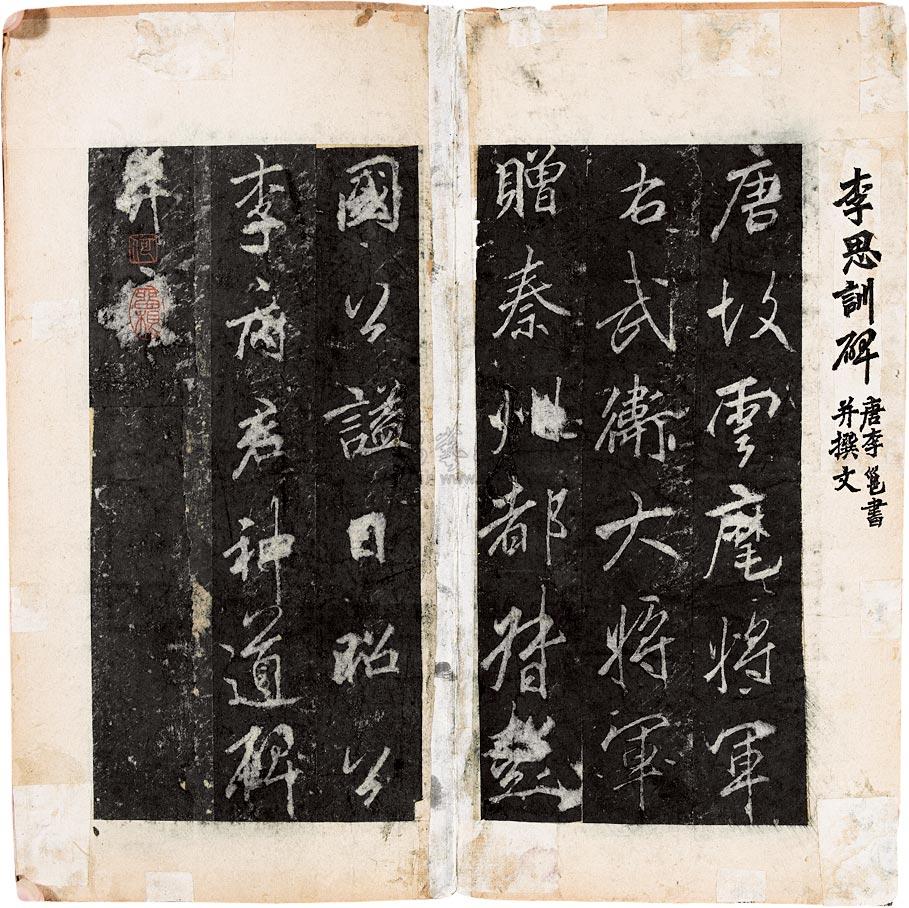 李思訓碑
唐李邕書
并撰文
唐故雲麾將軍
右武衛大將軍
贈秦州都督彭
國公謚曰昭公
李府君神道碑
并序